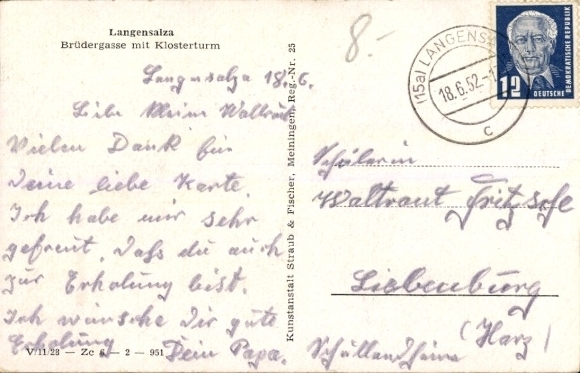 Langensalza
Brüdergasse mit Klosterturm
8.-
(15a) LANGENS
18.6.52
c
12
DEUTSCHE
DEMOKRATISCHE REPUBLIK
Langensalza 18.6.
Liebe Waltraut
Vielen Dank für
Deine liebe Karte.
Ich habe mir sehr
gefreut, dass du auch
zur Erholung bist.
Ich wünsche Dir gute
Erholung Dein Papa.
V/11/28 — Zc 6 — 2 — 951
Kunstanstalt Straub & Fischer, Meiningen, Reg.-Nr. 25
Schülerin
Waltraut Fritzsche
Liebenburg
(Harz)
Schullandheim